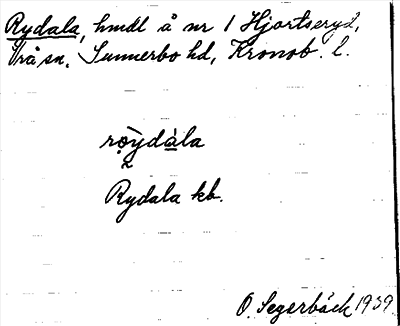 Rydala, hmdl å nr 1 Hjortseryd,
Vrå sn, Sunnerbo hd, Kronob. l.
rọ̀ydàla
2
Rydala kb.
O. Segerbäck 1939